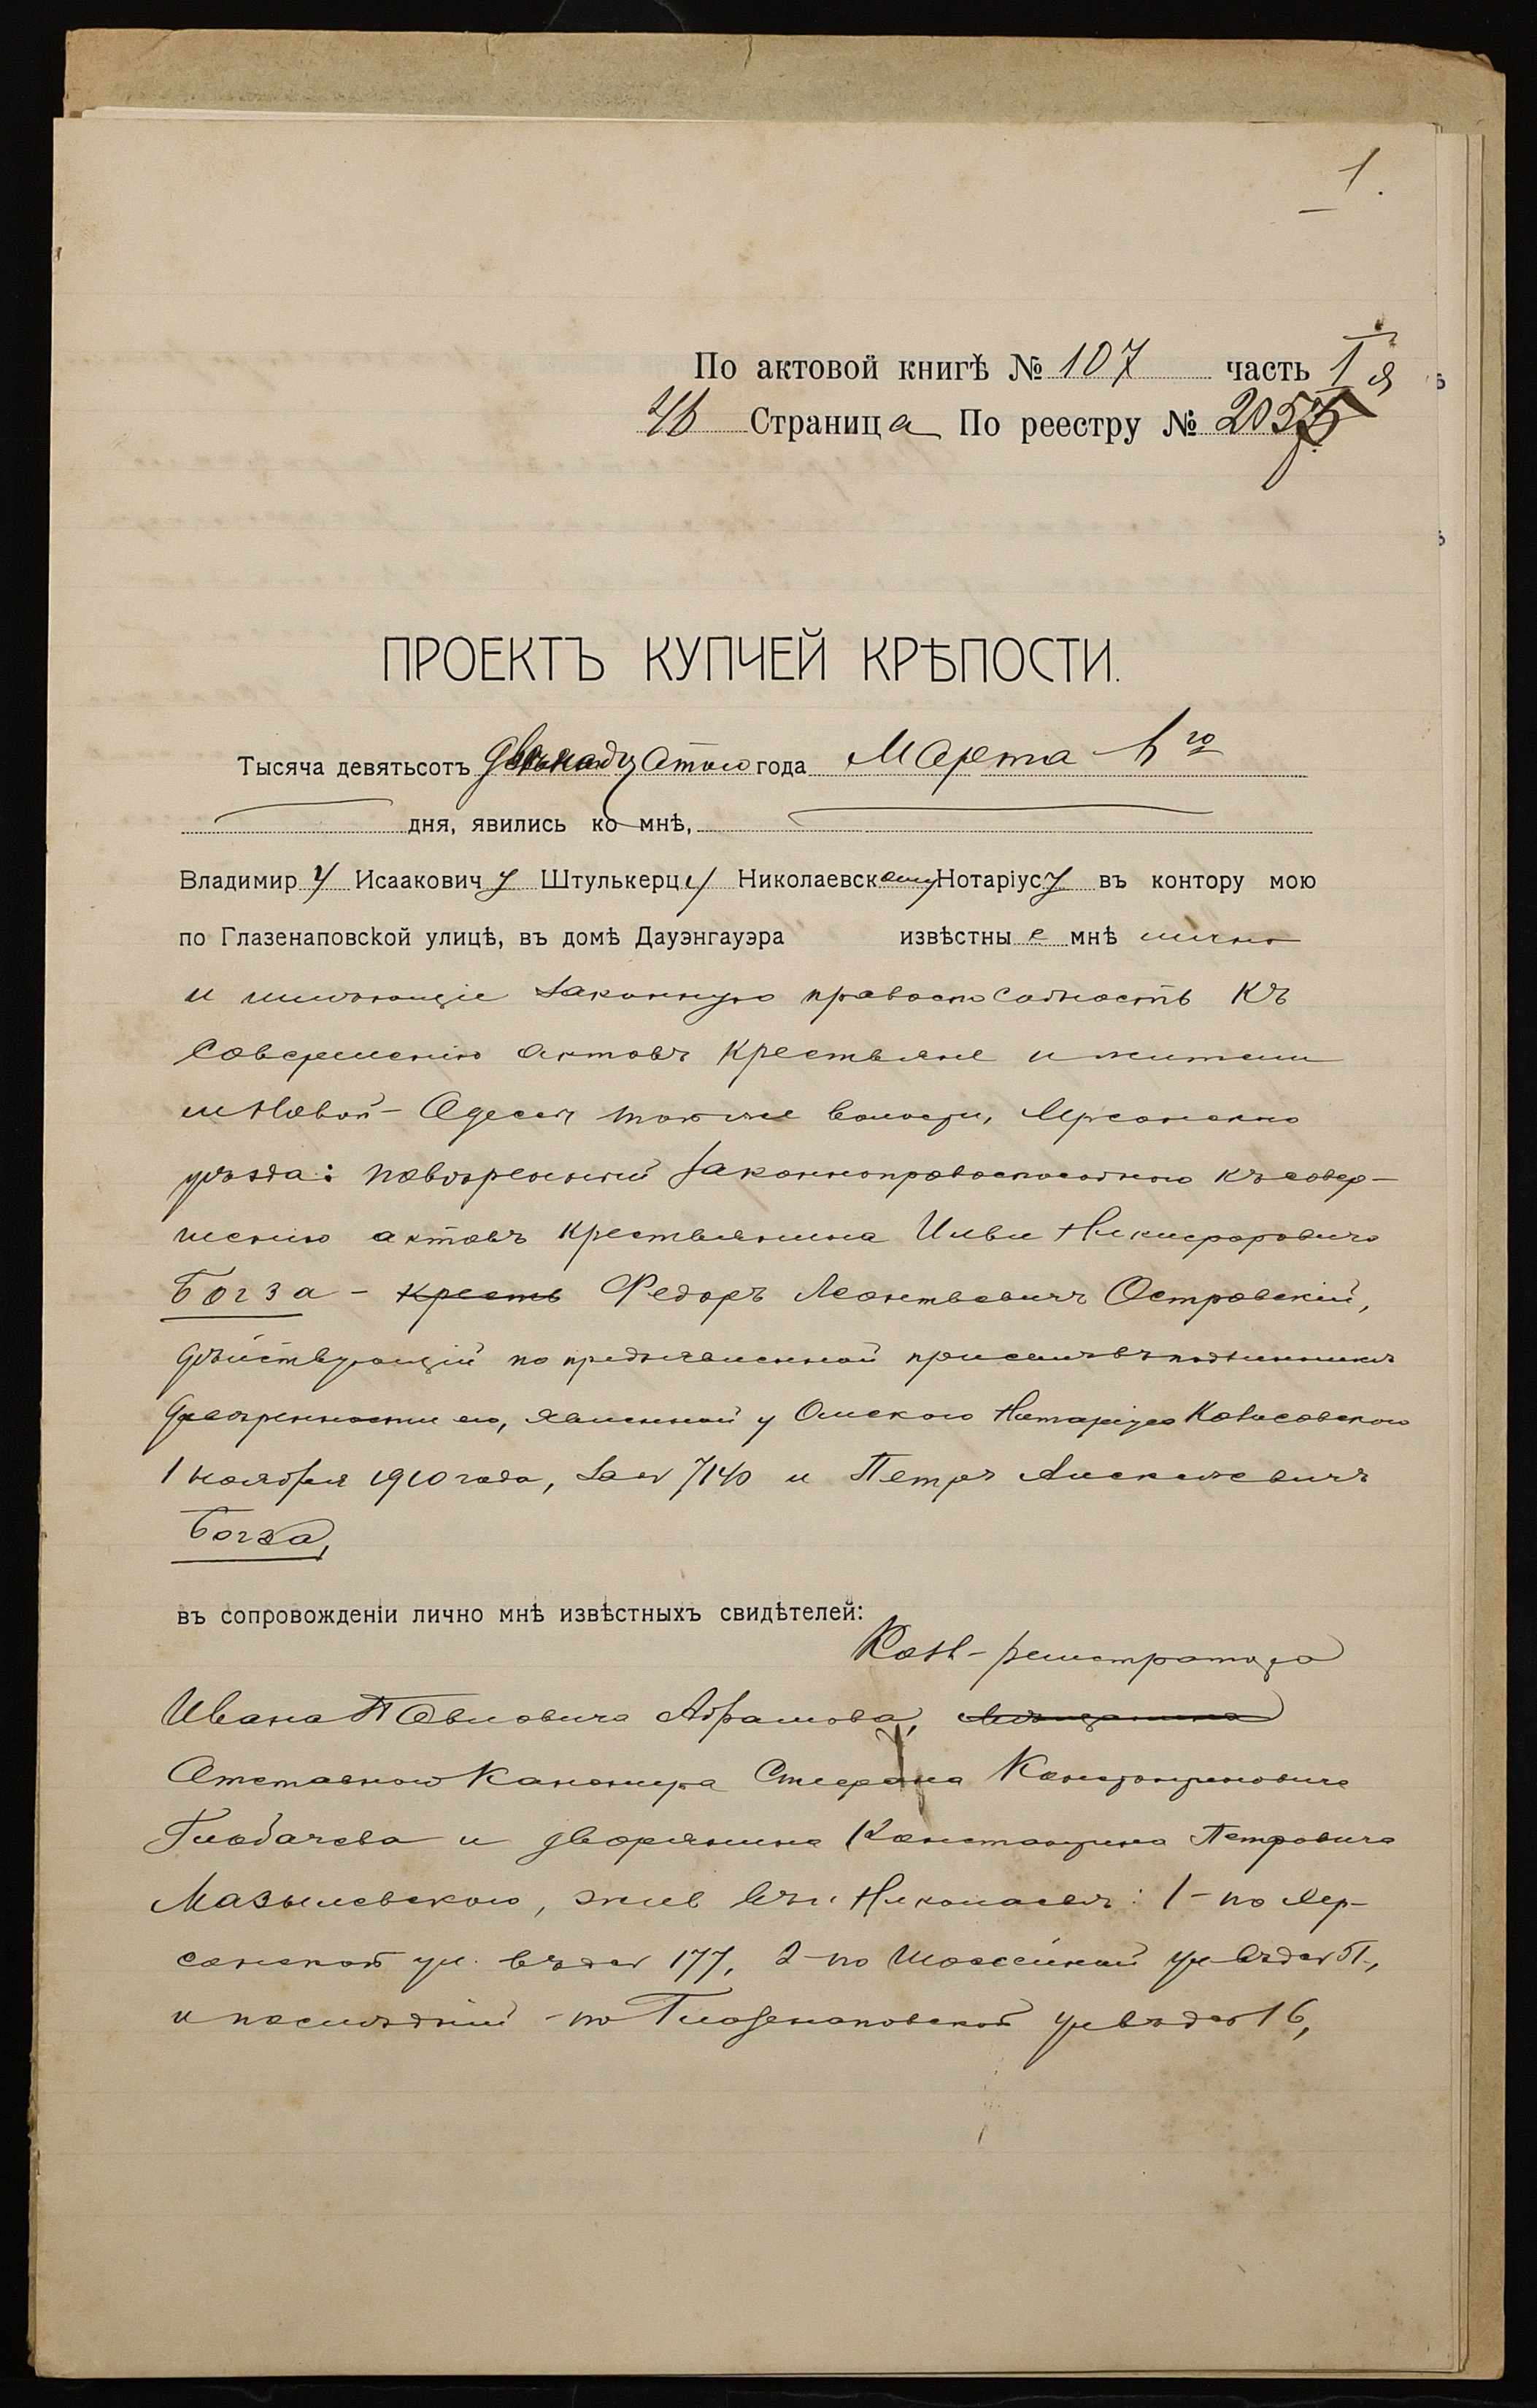 1.
По актовой книгѣ № 107 часть I я
Страница По реестру №
ПРОЕКТЪ КУПЧЕЙ КРѢПОСТИ.
Тысяча девятьсотъ двѣнадцатого года Марта го
дня, явились ко мнѣ,
Владимиру Исааковичу Штулькерцу Николаевскому Нотаріусу въ контору мою
по Глазенаповской улицѣ, въ домѣ Дауэнгауэра извѣстные мнѣ лично
и имѣющіе законную правоспособность къ
совершенію актовъ крестьяне и жители
м Новой-Одессы той же волости, Херсонскаго
уѣзда: повѣренный законноправоспособнаго къ совер-
шенію актовъ крестьянина Ильи Никифоровича
Богза - кресть Федоръ Леонтьевичъ Островскій,
дѣйствующій по предъявленной при семъ въ подлинникѣ
довѣренности его, явленной у Омскаго Нотаріуса
1 ноября 1910 года, за № 7140 и Петръ Алексѣевичъ
Богза,
въ сопровожденіи лично мнѣ извѣстныхъ свидѣтелей:
Колл-регистратора
Ивана Павловича Абрамова, мѣщанина
Отставного Канонира Стефана Константиновича
Глобачева и дворянина Константина Петровича
Мазылевского, жив въ г. Николаевѣ: 1 - по Хер-
сонской ул. въ д № 177, 2 - по Шоссейной ул въ д №
и послѣдній - по Глазенаповской ул въ д № 16,